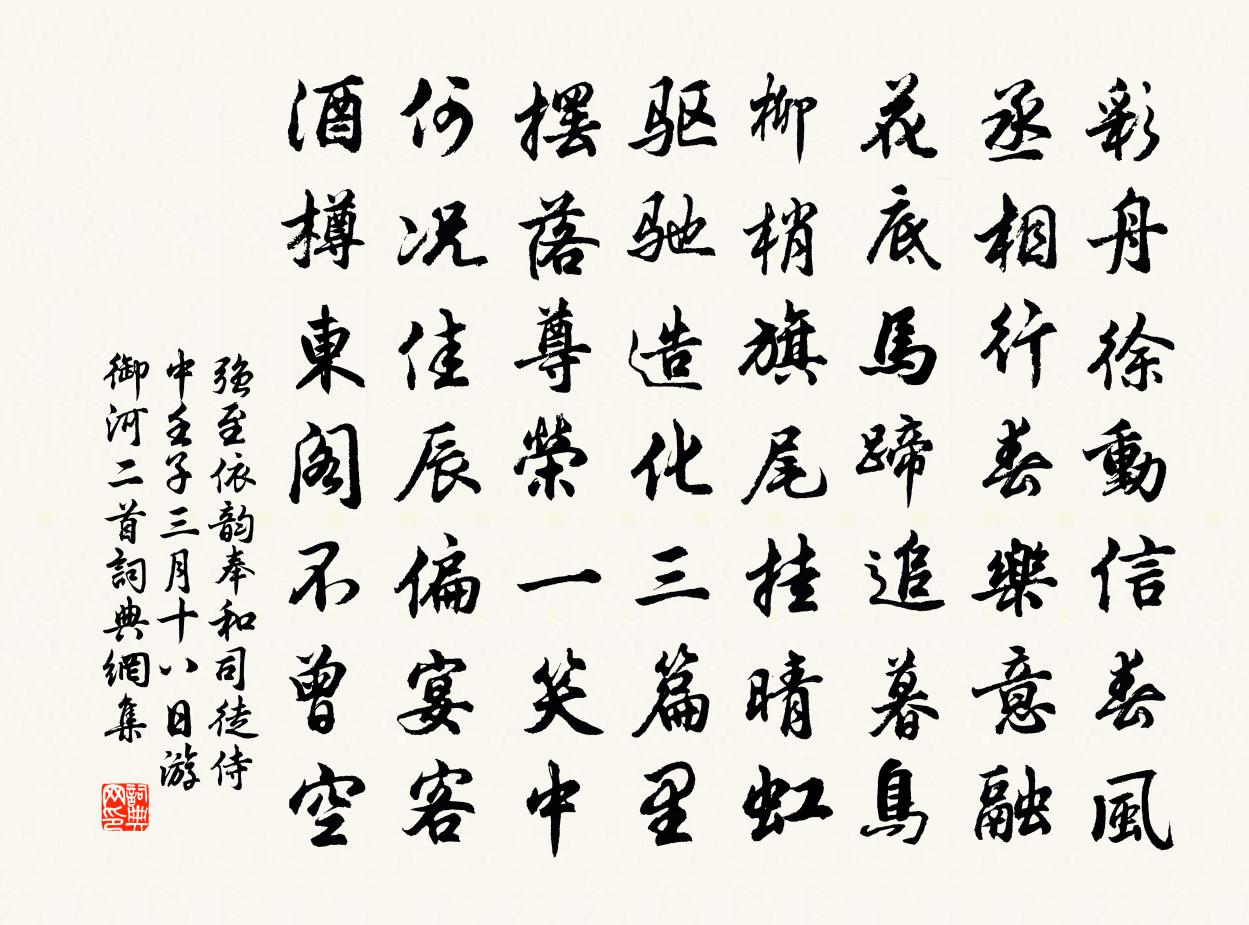 彩舟徐動信春風
丞相行春樂意融
花底馬蹄追暮鳥
柳梢旗尾挂晴虹
驱驰造化三篇里
擺落尊榮一笑中
何况佳辰偏宴客
酒樽東阁不曾空
强至依韵奉和司徒侍
中壬子三月十八日游
御河二首詞典網集
詞典
网印